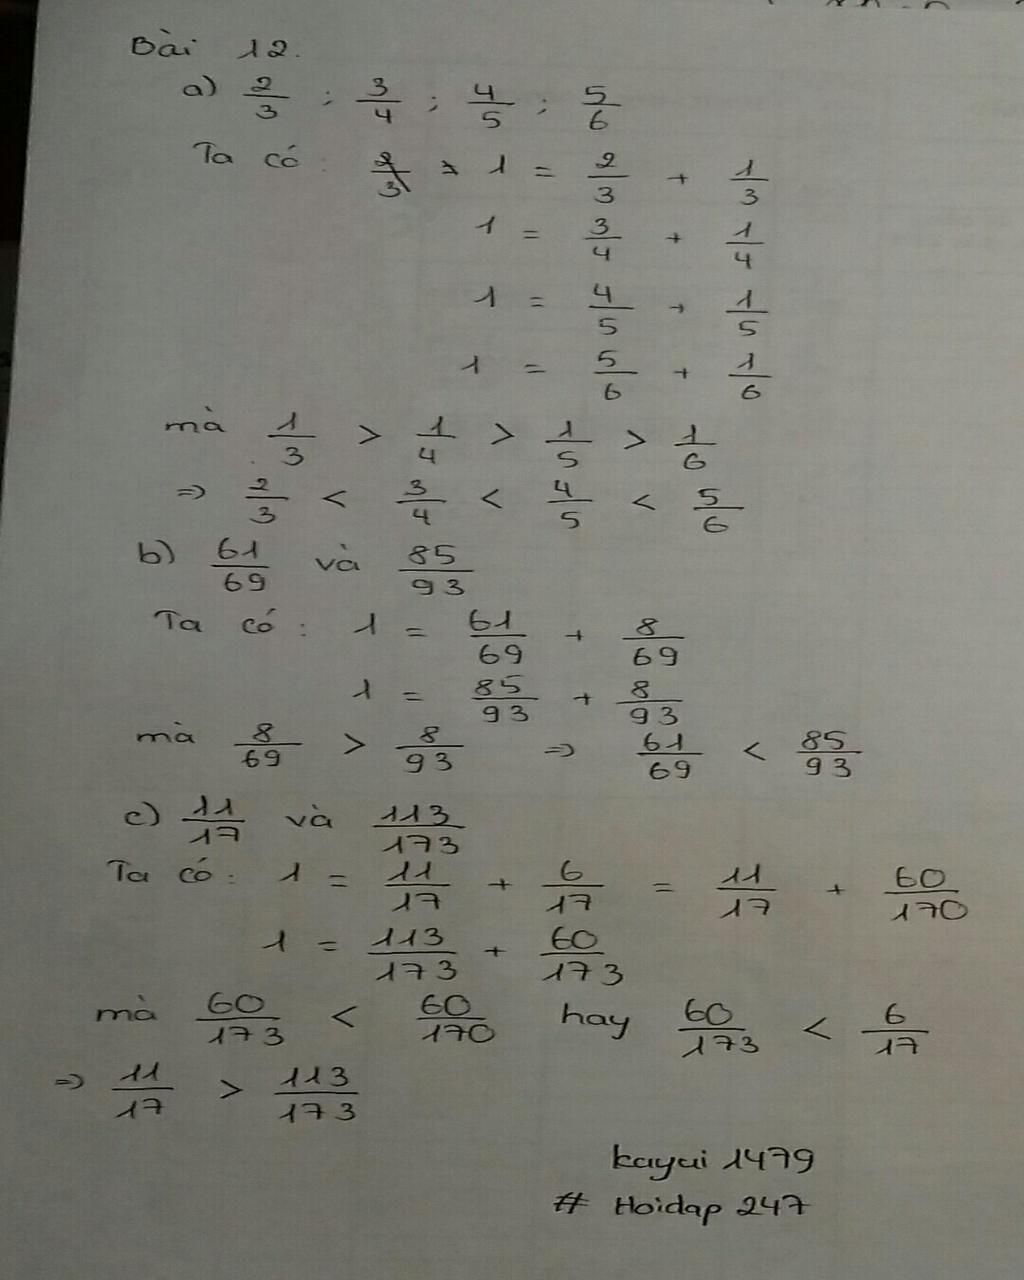 Bài 12.
a) 2/3 ; 3/4 ; 4/5 ; 5/6
Ta có : 1 = 2/3 + 1/3
1 = 3/4 + 1/4
1 = 4/5 + 1/5
1 = 5/6 + 1/6
mà 1/3 > 1/4 > 1/5 > 1/6
=> 2/3 < 3/4 < 4/5 < 5/6
b) 61/69 và 85/93
Ta có : 1 = 61/69 + 8/69
1 = 85/93 + 8/93
mà 8/69 > 8/93 => 61/69 < 85/93
c) 11/17 và 113/173
Ta có : 1 = 11/17 + 6/17 = 11/17 + 60/170
1 = 113/173 + 60/173
mà 60/173 < 60/170 hay 60/173 < 6/17
=> 11/17 > 113/173
kayui 1479
# Hoidap 247